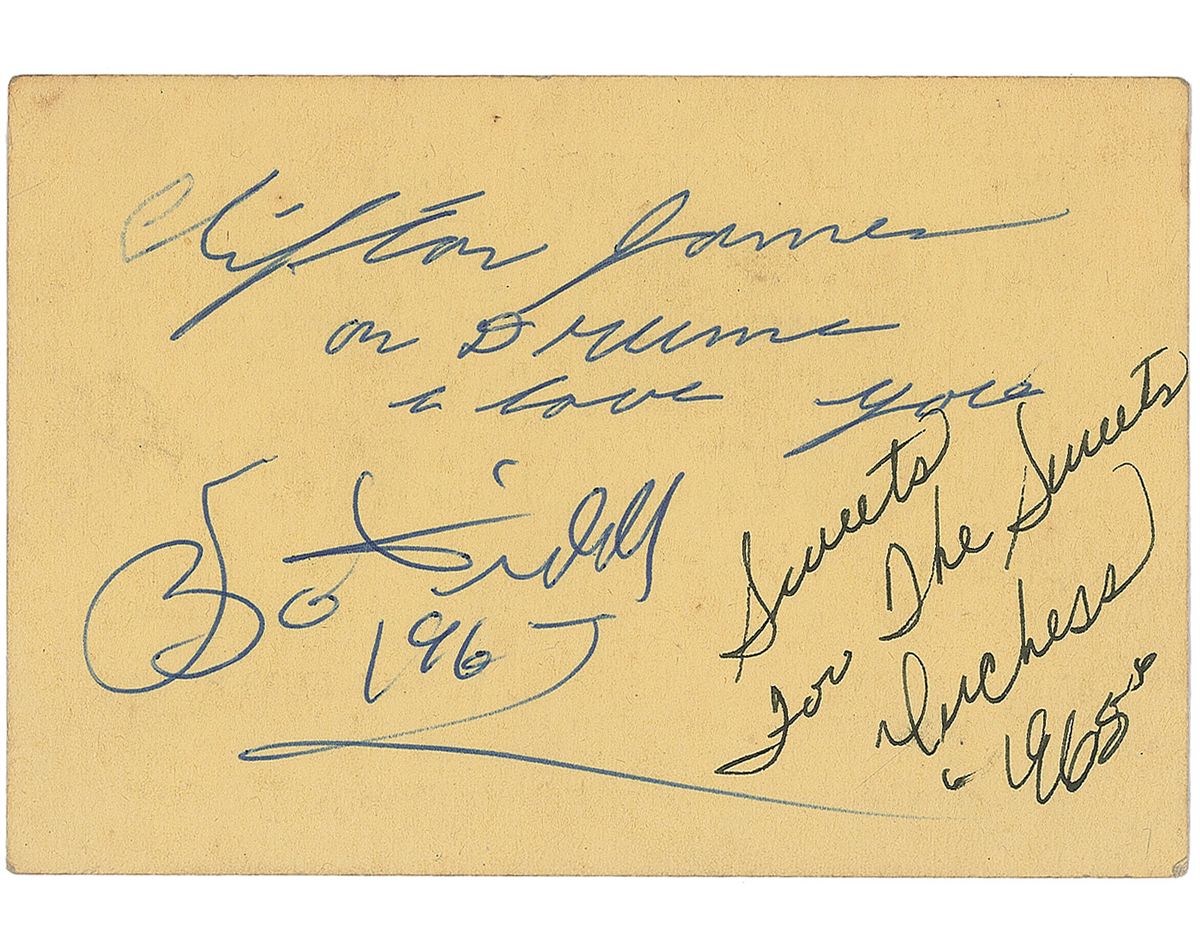 Clifton James
on Drums
i love you
Bo Diddley
1965
Sweets
For The Sweets
Duchess
1965